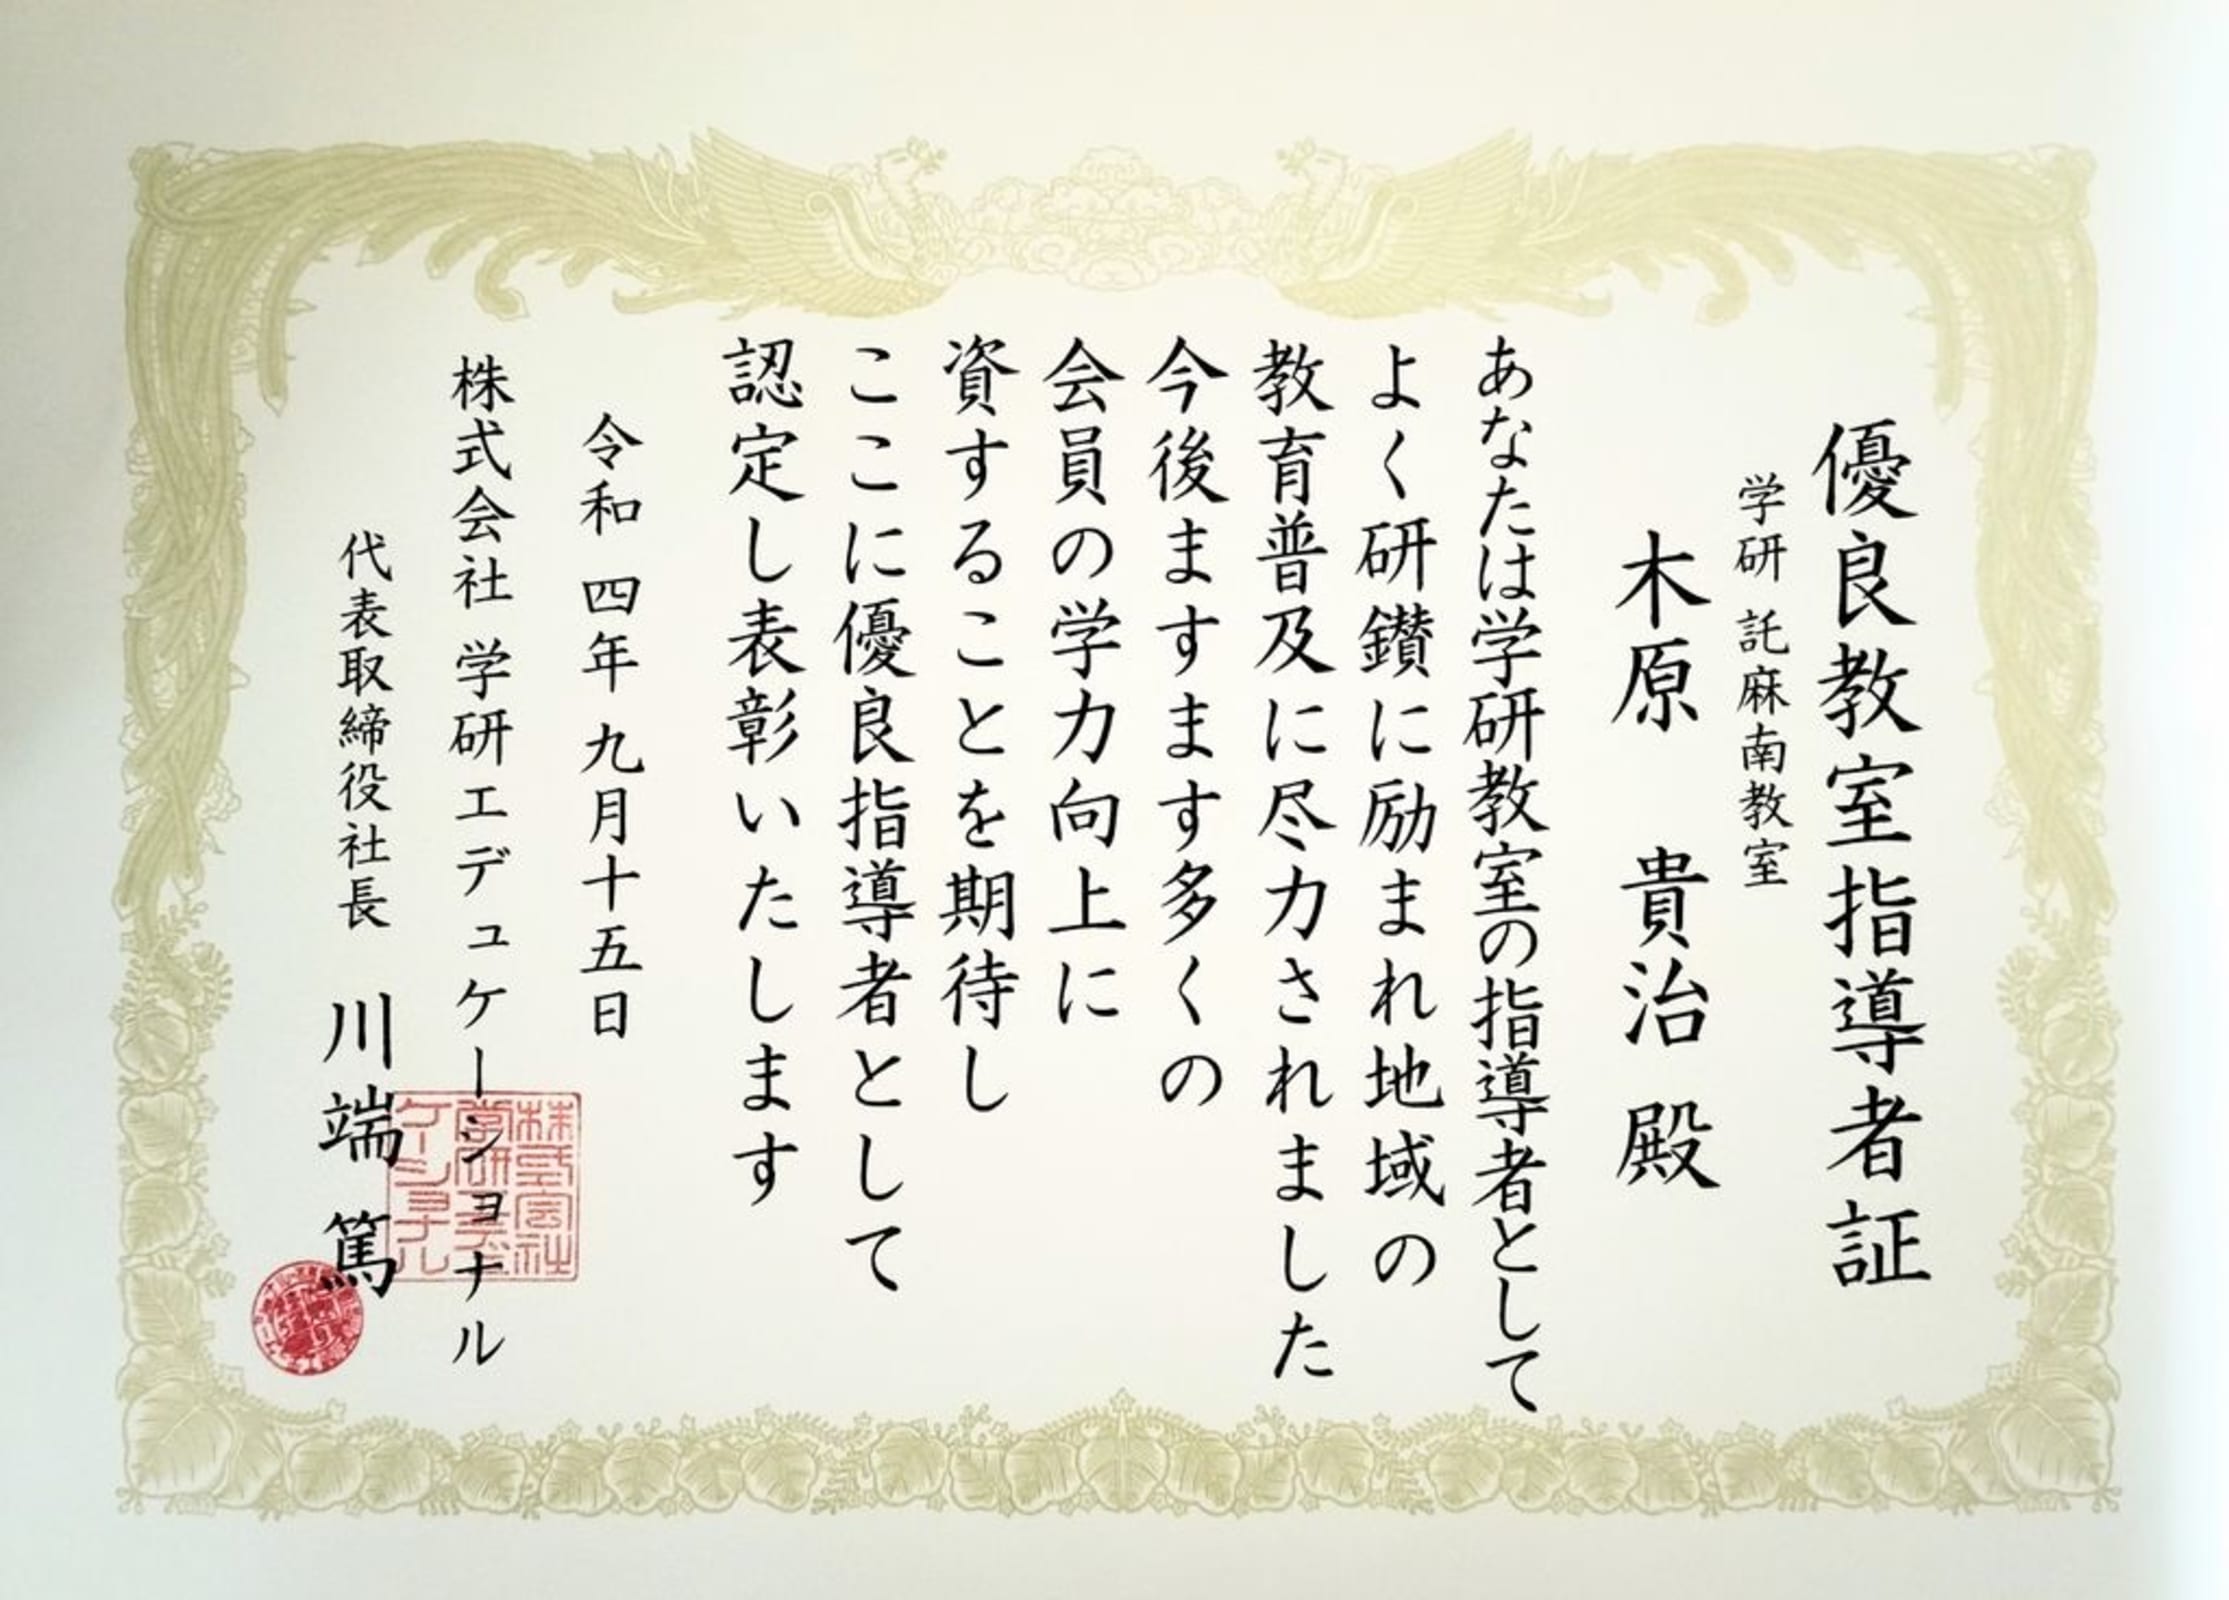 優良教室指導者証
学研 託麻南教室
木原 貴治 殿
あなたは学研教室の指導者として
よく研鑚に励まれ地域の
教育普及に尽力されました
今後ますます多くの
会員の学力向上に
資することを期待し
ここに優良指導者として
認定し表彰いたします
令和四年九月十五日
株式会社 学研エデュケーショナル
代表取締役社長 川端 篤
株式会社
学研エデュ
ケーショナル